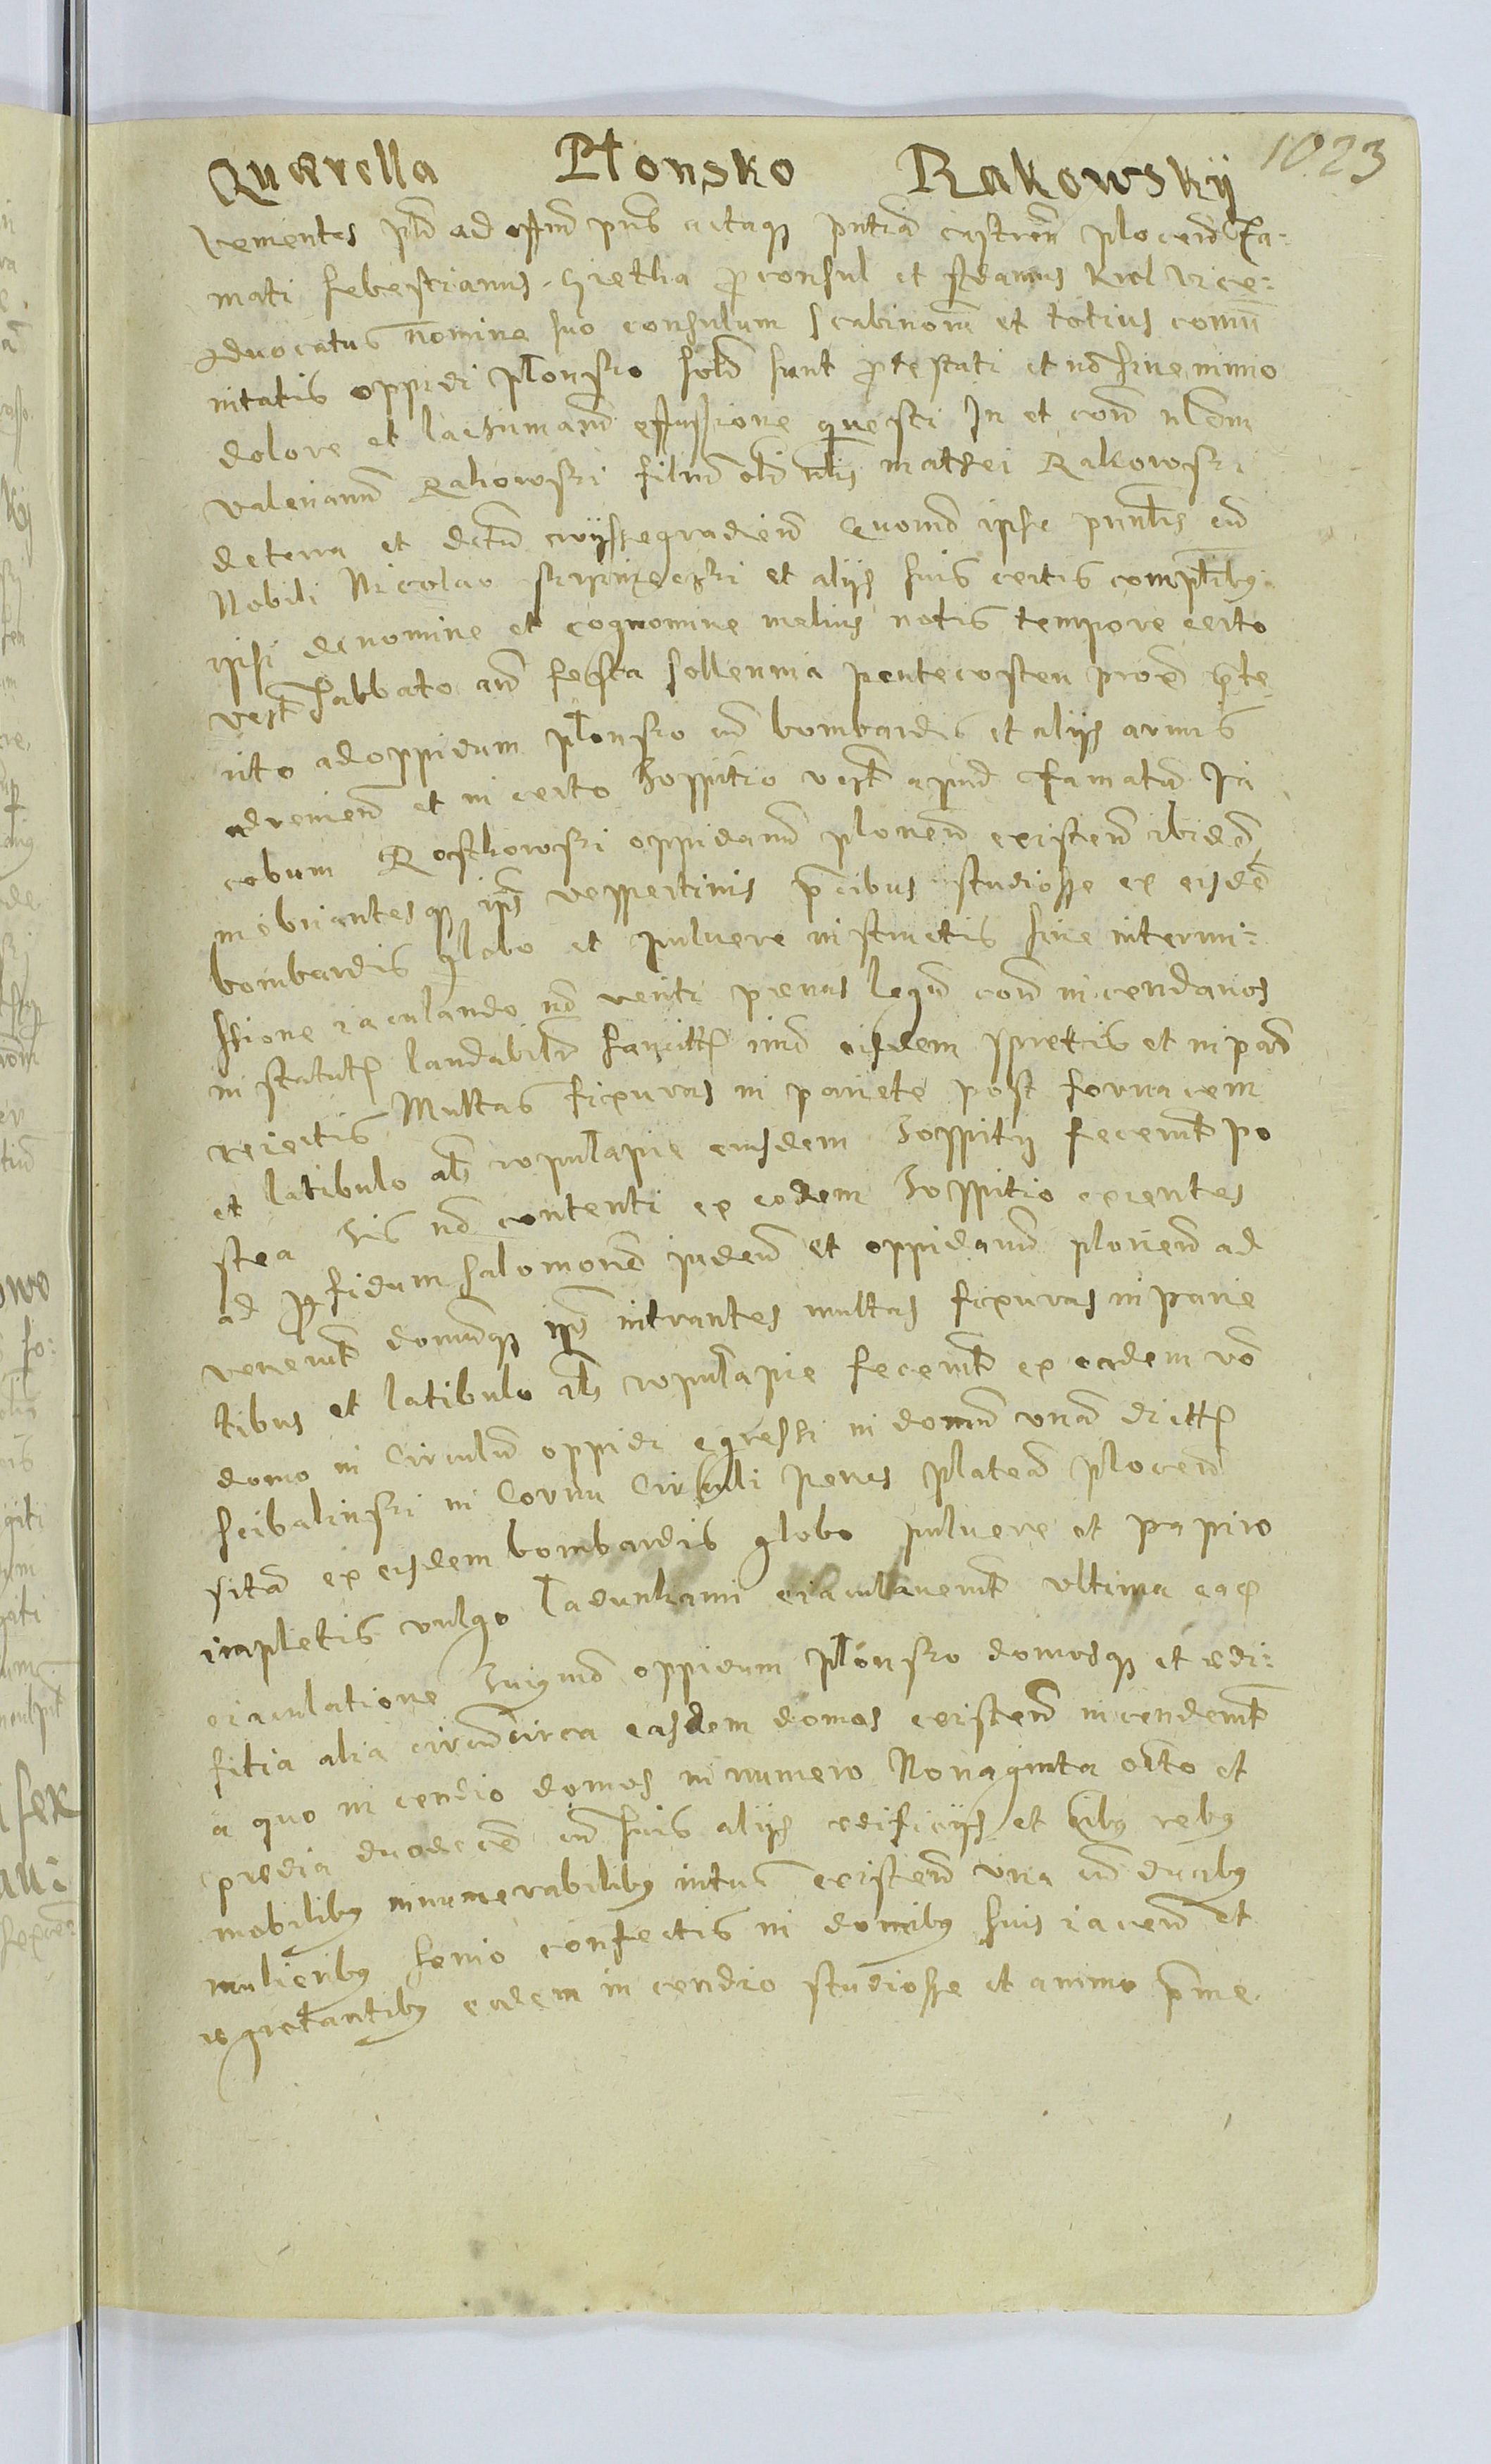 Quærella Płonsko Rakowskij 1023
Venientes pñr ad offm pñs actaqз pñtia castreñ ploceñ Fa-
mati Sebestianus Hietha pconsul et Stanus Kiel Vice-
advocatus nomine suo consulum scabinorum et totius comu
nitatis oppidi płonsko solr sunt ptestati et nõ sine nimio
dolore et lachrimarũ effussione questi In et con nlem
Valerianũ Rakowski filiũ olĩ nlis Mathei Rakowski
de terra et dctu wijsszegradieñ Quomõ ipse prinlis cũ
Nobili Nicolao et alijs suis certis complibз
ipsi de nomine et cognomine melius notis tempore certo
vest Sabbato añ festa sollennia pentecosten prox pte
rito ad oppidum płonsko cũ bombardis et alijs armis
advenieñ et in certo hospitio vest apud famatũ Ja
cobum Roskowski oppidanũ ploneñ existeñ ibidẽ
inebriantesqз ips vespertinis pcibus studiosse ex eisdẽ
bombardis globo et pulvere instructis sine intermi-
ssione iaculando nõ veriti penas legũ con incendarios
institutas laudabilr sancitas imo eisdem spretis et in pañ
reiectis Multas fixuras in pariete post fornacem
et latibulo als eiusdem hospitij fecerunt po
stea his nõ contenti ex eodem hospitio exeuntes
ad pfidum Salomonẽ judeũ et oppidanũ ploneñ ad
venerunt domumqз ips intrantes multas fixuras in parie
tibus et latibulo als fecerunt ex eadem vo
domo in Circulũ oppidi egressi in domũ unã dictã
Scibalinski in Cornu Circuli penes plateã ploceñ
sitã ex eisdem bombardis globo pulvere et papiro
impletis vulgo ładunkami eiaculaverunt ultima eaq
eiaculatione huiusmõ oppidum płonsko domosqз et edi-
fitia alia circumcirca easdem domos existeñ incenderunt
a quo incendio domos in numero Nonaginta octo et
predia duodecẽ cũ suis alijs edificijs et oibз rebз
mobilibз innumerabilibз intus existeñ una cũ duabз
mulieribз senio confectis in domibз suis iaceñ et
egrotantibз eodem incendio studiosse et animo pme